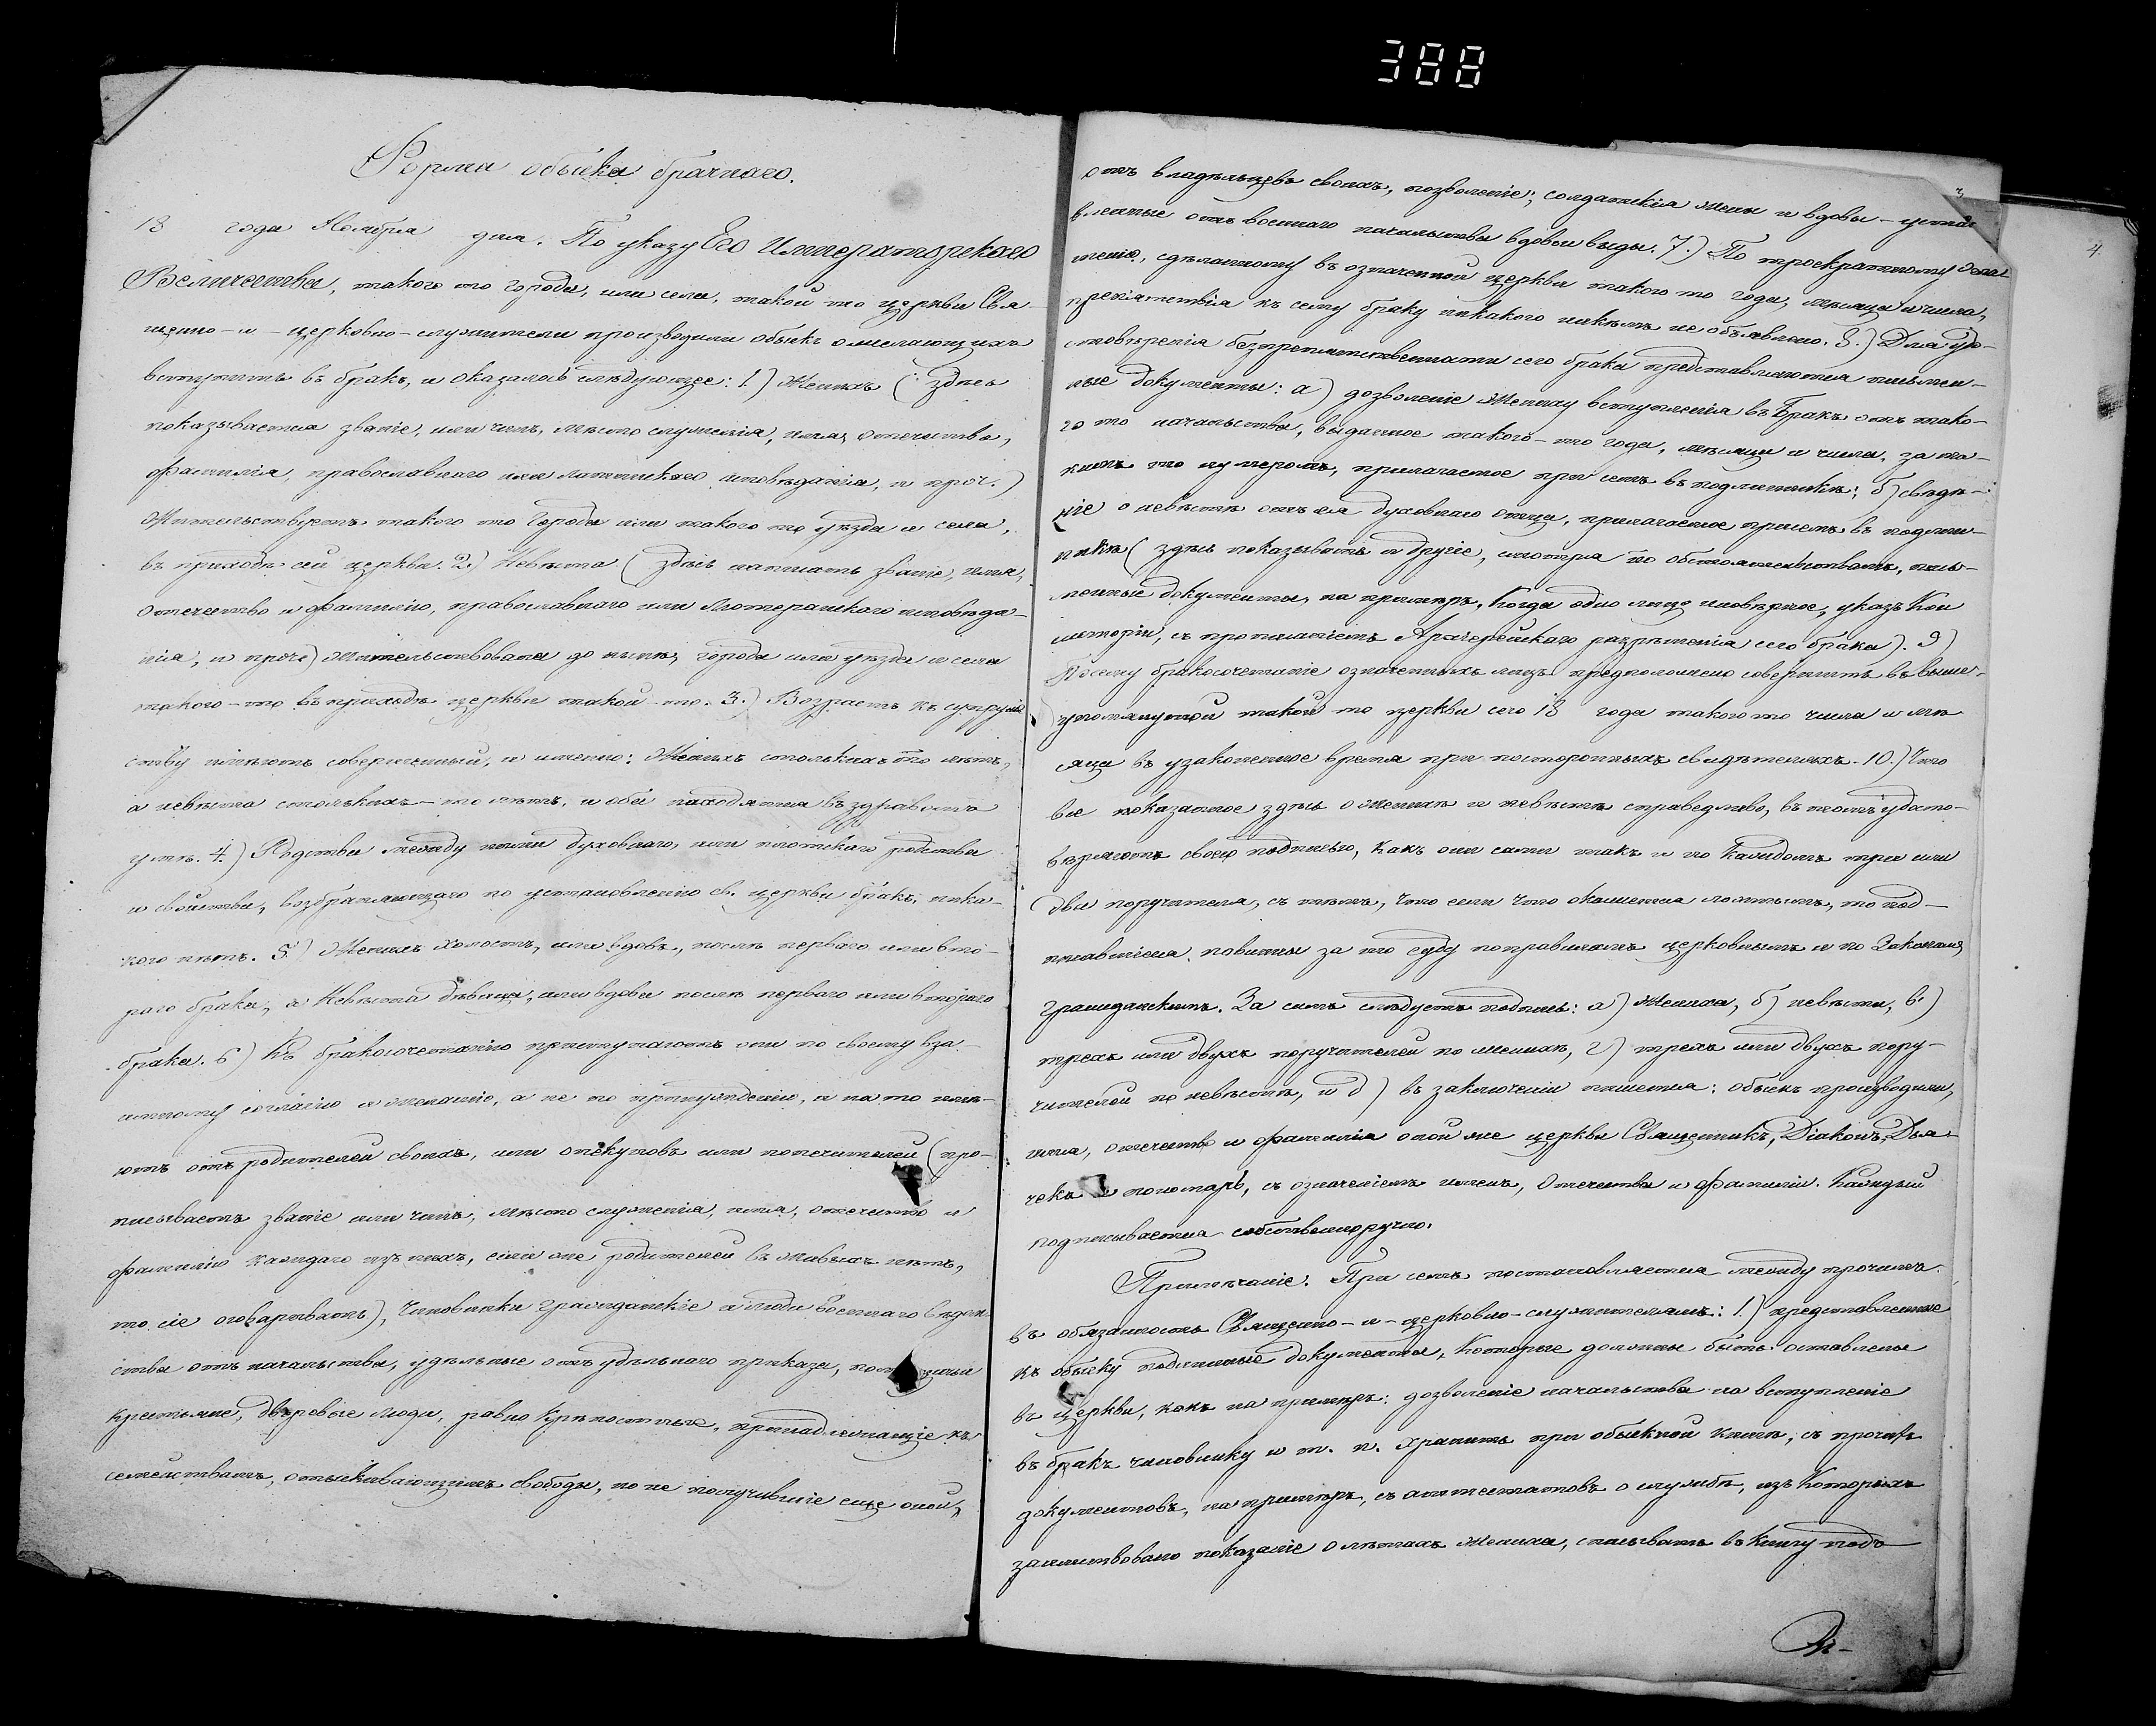 388
Форма обыска брачнаго.
18 года Ноября дня. По указу Его Императорскаго
Величества, такого то города, или села, такой то церкви Свя-
щенно-и-церковно-служители производили обыскъ о желающихъ
вступить въ бракъ, и оказалось слѣдующее: 1.) Женихъ (: здѣсь
показывается званіе, или чинъ, мѣсто служенія, имя, отечество,
фамилія, православнаго или латинскаго исповѣданія, и проч.)
Жительствуетъ такого то города или такого то уѣзда и села,
въ приходѣ сей церкви. 2.) Невѣста (здѣсь написать званіе, имя,
отечество и фамилію, православнаго или Лютеранскаго исповѣда-
нія, и проч:) жительствовала до нынѣ, города или уѣзда и села
такого-то въ приходѣ церкви такой-то. 3.) Возрастъ къ супруже-
ству имѣютъ совершенный, и именно: Женихъ столькихъ то лѣтъ,
а невѣста столькихъ-то лѣтъ, и оба находятся въ здравомъ
умѣ. 4.) Родства между ними духовнаго, или плотскаго родства
и свойства, возбраняющаго по установленію св. церкви бракъ, ника-
кого нѣтъ. 5.) Женихъ холостъ, или вдовъ, послѣ перваго или вто-
раго брака, а Невѣста дѣвица, или вдова послѣ перваго или втораго
брака. 6.) Къ бракосочетанію приступаютъ они по своему вза-
имному согласію и желанію, а не по принужденію, и на то имѣ-
ютъ отъ родителей своихъ, или опекуновъ или попечителей (про-
писываетъ званіе или чинъ, мѣсто служенія, имя, отечество и
фамилію каждаго изъ нихъ, если же родителей въ живыхъ нѣтъ,
то сіе оговаривать), Чиновники гражданскіе и люди военнаго вѣдом
ства отъ начальства, удѣльные отъ удѣльнаго приказа, помѣщичьи
крестьяне, дворовые люди, равно крѣпостные, принадлежащіе къ
семействамъ, отыскивающимъ свободы, но не получившіе еще оной,
4.
отъ владѣльцевъ своихъ, позволеніе; солдатскія жены и вдовы-уста
вленные отъ военнаго начальства вдовьи виды. 7.) По троекратному огла-
шенію, сдѣланному въ означенной церкви такого то года, мѣсяца и числа,
препятствія къ сему браку никакого никѣмъ не объявлено. 8.) Для удо-
стовѣренія безпрепятственности сего брака представляются письмен-
ные документы: а) дозволеніе Жениху вступленія въ Бракъ отъ тако-
го то начальства, выданное такого-то года, мѣсяца и числа, за та-
кимъ то нумеромъ, прилагаемое при семъ въ подлинникѣ; б) свѣдѣ-
ніе о невѣстѣ отъ ея духовнаго отца, прилагаемое при семъ въ подлин-
никѣ (здѣсь показывать и другіе, смотря по обстоятельствамъ, пись-
менные документы, на примѣръ, когда одно лице иновѣрное, указъ Кон
систоріи, съ прописаніемъ Архіерейскаго разрѣшенія сего брака). 9.)
По сему бракосочетаніе означенныхъ лицъ предположено совершить въ выше-
упомянутой такой то церкви сего 18 года такого то числа и мѣ
сяца въ узаконенное время при постороннихъ свидѣтеляхъ. 10.) Что
все показанное здѣсь о женихѣ и невѣстѣ справедливо, въ томъ удосто-
вѣряютъ своею подписью, какъ они сами такъ и по каждомъ три или
два поручителя, съ тѣмъ, что если что окажется ложнымъ, то под-
писавшіеся повинны за то суду по правиламъ церковнымъ и по Законамъ
гражданскимъ. За симъ слѣдуетъ подпись: а) Жениха, б) невѣсты, в)
трехъ или двухъ поручителей по женихѣ, г) трехъ или двухъ пору-
чителей по невѣстѣ, и д) въ заключеніи пишется: обыскъ производили,
имя, отечество и фамилія оной же церкви Священникъ, Діаконъ, Дья-
чекъ и пономарь, съ означеніемъ именъ, отечества и фамиліи. Каждый
подписывается собственноручно.
Примѣчаніе. При семъ постановляется между прочимъ
въ обязанность Священно-и-церковно-служителямъ: 1.) представленные
къ обыску подлинные документы, которые должны быть оставлены
въ церкви, какъ на примѣръ: дозволеніе начальства на вступленіе
въ бракъ чиновнику и т. п. хранить при обыскной книгѣ, съ прочихъ
документовъ, на примѣръ, съ аттестатовъ о службѣ, изъ которыхъ
заимствовано показаніе о лѣтахъ жениха, списывать въ книгу подъ